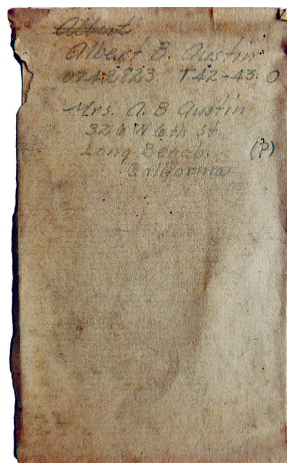 Albert
Albert B. Austin
T42-43 O
Mrs. A B Austin
326 W 6th St.
Long Beach. (P)
California